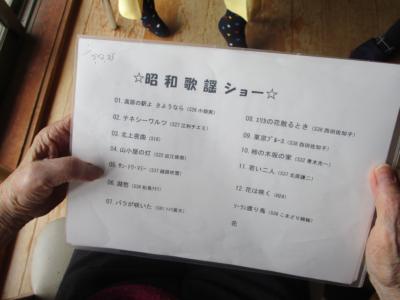 ☆昭和歌謡ショー☆
01. 高原の駅よ さようなら (S26 小畑実)
02. テネシーワルツ (S27 江利チエミ)
03. 北上夜曲 (S16)
04. 山小屋の灯 (S22 近江俊郎)
05. サン・トワ・マミー (S37 越路吹雪)
06. 湖愁 (S36 松島アキラ)
07. バラが咲いた (S41 マイク真木)
08. エリカの花散るとき (S38 西田佐知子)
09. 東京ブルース (S38 西田佐知子)
10. 柿の木坂の家 (S32 青木光一)
11. 若い二人 (S37 北原謙二)
12. 花は咲く (H24)
花